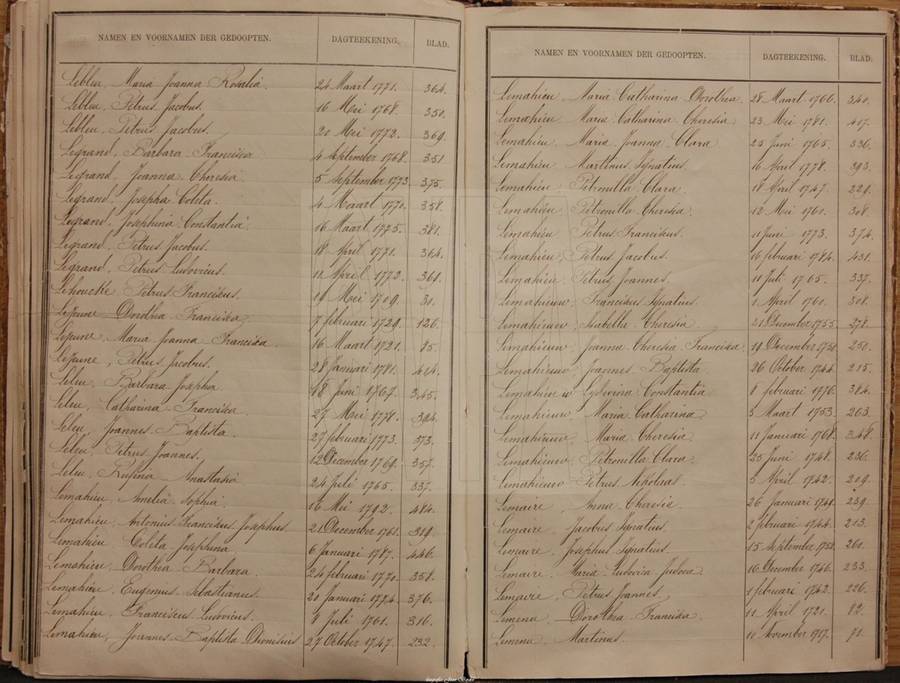 NAMEN EN VOORNAMEN DER GEDOOPTEN. DAGTEEKENING. BLAD.
Lebleu, Maria Joanna Rosalia. 24 Maart 1771. 364.
Lebleu, Petrus Jacobus. 16 Mei 1768. 350.
Lebleu, Petrus Jacobus. 20 Mei 1772. 369.
Legrand, Barbara Francisca 4 September 1768. 351.
Legrand, Joanna Theresia 5 September 1773. 375.
Legrand, Josepha Coleta. 4 Maart 1770. 358.
Legrand, Josephina Constantia 16 Maart 1775. 381.
Legrand, Petrus Jacobus. 18 April 1771. 364.
Legrand, Petrus Ludovicus. 11 April 1772. 368.
Lehoucke Petrus Franciscus. Mei 1709. 31.
Lejeune Dorothea Francisca 7 februari 1729. 126.
Lejeune, Maria Joanna Francisca 16 Maart 1721. 85.
Lejeune, Petrus Jacobus. 28 Januari 1781. 414.
Leleu, Barbara Josepha 18 Juni 1767. 345.
Leleu, Catharina Francisca. 27 Mei 1778. 394.
Leleu, Joannes Baptista. 27 februari 1773. 373.
Leleu, Petrus Joannes. 12 December 1769. 357.
Leleu, Rufina Anastasia 24 Juli 1765. 337.
Lemahieu, Amelia Sophia. 16 Mei 1792. 484.
Lemahieu, Antonius Franciscus Josephus 21 December 1761. 319.
Lemahieu Coleta Josephina 6 Januari 1787. 446.
Lemahieu, Dorothea Barbara. 24 februari 1770. 358.
Lemahieu, Eugenius Sebastianus. 20 Januari 1774. 376.
Lemahieu, Franciscus Ludovicus. Juli 1761. 316.
Lemahieu, Joannes Baptista Dionisius 27 October 1747. 232.
NAMEN EN VOORNAMEN DER GEDOOPTEN. DAGTEEKENING. BLAD.
Lemahieu, Maria Catharina Dorothea. 28 Maart 1766. 340.
Lemahieu Maria Catharina Theresia 23 Mei 1781. 417.
Lemahieu, Maria Joanna Clara 25 Juni 1765. 336.
Lemahieu Martinus Ignatius. 16 April 1778. 393.
Lemahieu Petronilla Clara 18 April 1747. 229.
Lemahieu Petronilla Theresia. 12 Mei 1760. 308.
Lemahieu Petrus Franciscus. 11 Juni 1773. 374.
Lemahieu, Petrus Jacobus. 16 februari 1784. 431.
Lemahieu Petrus Joannes. 11 Juli 1765. 337.
Lemahieuw, Franciscus Ignatius. 1 April 1760. 308.
Lemahieuw Isabella Theresia 21 December 1755. 278.
Lemahieuw Joanna Theresia Francisca 19 December 250.
Lemahieuw Joannes Baptista. 26 October 1744. 215.
Lemahieuw Lydivina Constantia 8 februari 1776. 384.
Lemahieuw Maria Catharina 5 Maart 1753 263.
Lemahieuw, Maria Theresia 11 Januari 1768. 348.
Lemahieuw Petronilla Clara. 25 Juni 1748. 236.
Lemahieuw Petrus Nicolaus. 5 April 1742. 209.
Lemaire, Anna Theresia. 26 Januari 239.
Lemaire, Jacobus Ignatius. 2 februari 1744. 213.
Lemaire, Josephus Ignatius. 15 September 1752. 260.
Lemaire, Maria Ludovica Judoca 16 December 1746. 233.
Lemaire, Petrus Joannes. 1 februari 1742. 226.
Lemenu, Dorothea Francisca 11 April 1721.
Lemenu Martinus. 10 November 71.